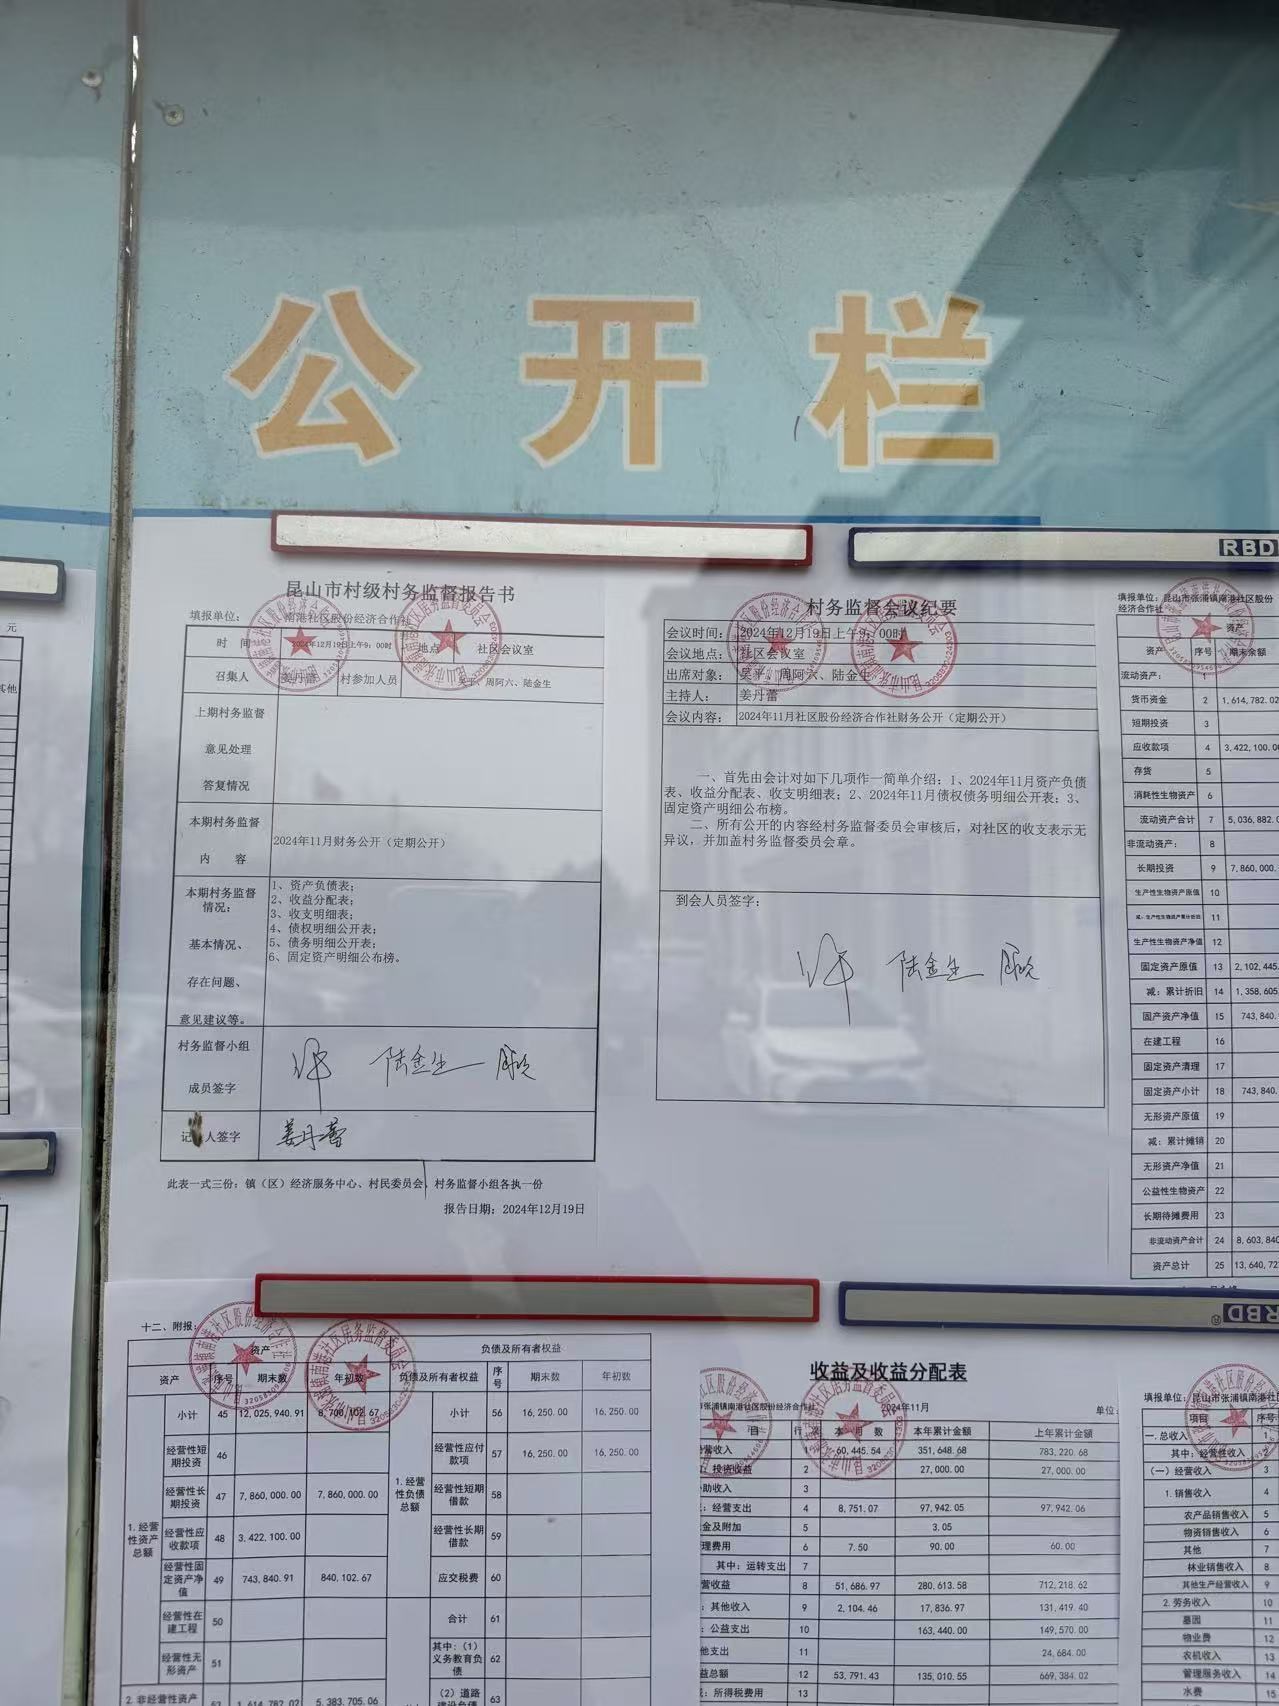 公开栏
RBD
元
其他
昆山市村级村务监督报告书
填报单位: 南港社区股份经济合作社
时 间 2024年12月19日上午9:00时 地点 社区会议室
召集人 姜丹蕾 村参加人员 吴平、周阿六、陆金生
上期村务监督
意见处理
答复情况
本期村务监督
内 容
2024年11月财务公开(定期公开)
本期村务监督
情况:
基本情况、
存在问题、
意见建议等。
1、资产负债表;
2、收益分配表;
3、收支明细表;
4、债权明细公开表;
5、债务明细公开表;
6、固定资产明细公布榜。
村务监督小组
成员签字
陆金生
记 人签字 姜丹蕾
此表一式三份:镇(区)经济服务中心、村民委员会、村务监督小组各执一份
报告日期:2024年12月19日
村务监督会议纪要
会议时间: 2024年12月19日上午9:00时
会议地点: 社区会议室
出席对象: 吴平、周阿六、陆金生
主持人: 姜丹蕾
会议内容: 2024年11月社区股份经济合作社财务公开(定期公开)
一、首先由会计对如下几项作一简单介绍:1、2024年11月资产负债
表、收益分配表、收支明细表;2、2024年11月债权债务明细公开表;3、
固定资产明细公布榜。
二、所有公开的内容经村务监督委员会审核后,对社区的收支表示无
异议,并加盖村务监督委员会章。
到会人员签字:
陆金生
填报单位:昆山市张浦镇南港社区股份
经济合作社
资产
资产 序号 期末余额
流动资产: 1
货币资金 2 1,614,782.02
短期投资 3
应收款项 4 3,422,100.0
存货 5
消耗性生物资产 6
流动资产合计 7 5,036,882.0
非流动资产: 8
长期投资 9 7,860,000.
生产性生物资产原值 10
减:生产性生物资产累计折旧 11
生产性生物资产净值 12
固定资产原值 13 2,102,445.
减:累计折旧 14 1,358,605.
固产资产净值 15 743,840.
在建工程 16
固定资产清理 17
固定资产小计 18 743,840.
无形资产原值 19
减:累计摊销 20
无形资产净值 21
公益性生物资产 22
长期待摊费用 23
非流动资产合计 24 8,603,840
资产总计 25 13,640,72
RBD
十二、附报:
资产 负债及所有者权益
资产 序号 期末数 年初数 负债及所有者权益 序号 期末数 年初数
小计 45 12,025,940.91 8,700,102.67 小计 56 16,250.00 16,250.00
经营性短期投资 46 经营性应付款项 57 16,250.00 16,250.00
经营性长期投资 47 7,860,000.00 7,860,000.00 经营性短期借款 58
1.经营性资产总额 经营性应收款项 48 3,422,100.00 1.经营性负债总额 经营性长期借款 59
经营性固定资产净值 49 743,840.91 840,102.67 应交税费 60
经营性在建工程 50 合计 61
经营性无形资产 51 其中:(1)义务教育负债 62
2.非经营性资产 52 1,614,782.02 5,383,705.06 (2)道路建设负债 63
收益及收益分配表
张浦镇南港社区股份经济合作社 2024年11月 单位:
目 行次 本月数 本年累计金额 上年累计金额
营收入 1 60,445.54 351,648.68 783,220.68
:投资收益 2 27,000.00 27,000.00
助收入 3
:经营支出 4 8,751.07 97,942.05 97,942.06
金及附加 5 3.05
理费用 6 7.50 90.00 60.00
其中:运转支出 7
营收益 8 51,686.97 280,613.58 712,218.62
:其他收入 9 2,104.46 17,836.97 131,419.40
:公益支出 10 163,440.00 149,570.00
他支出 11 24,684.00
益总额 12 53,791.43 135,010.55 669,384.02
:所得税费用 13
填报单位:昆山市张浦镇南港社
项目 序号
一.总收入 1
其中:经营性收入 2
(一)经营收入 3
1.销售收入 4
农产品销售收入 5
物资销售收入 6
其他 7
林业销售收入 8
其他生产经营收入 9
2.劳务收入 10
墓园 11
物业费 12
农机收入 13
管理服务收入 14
水费 15